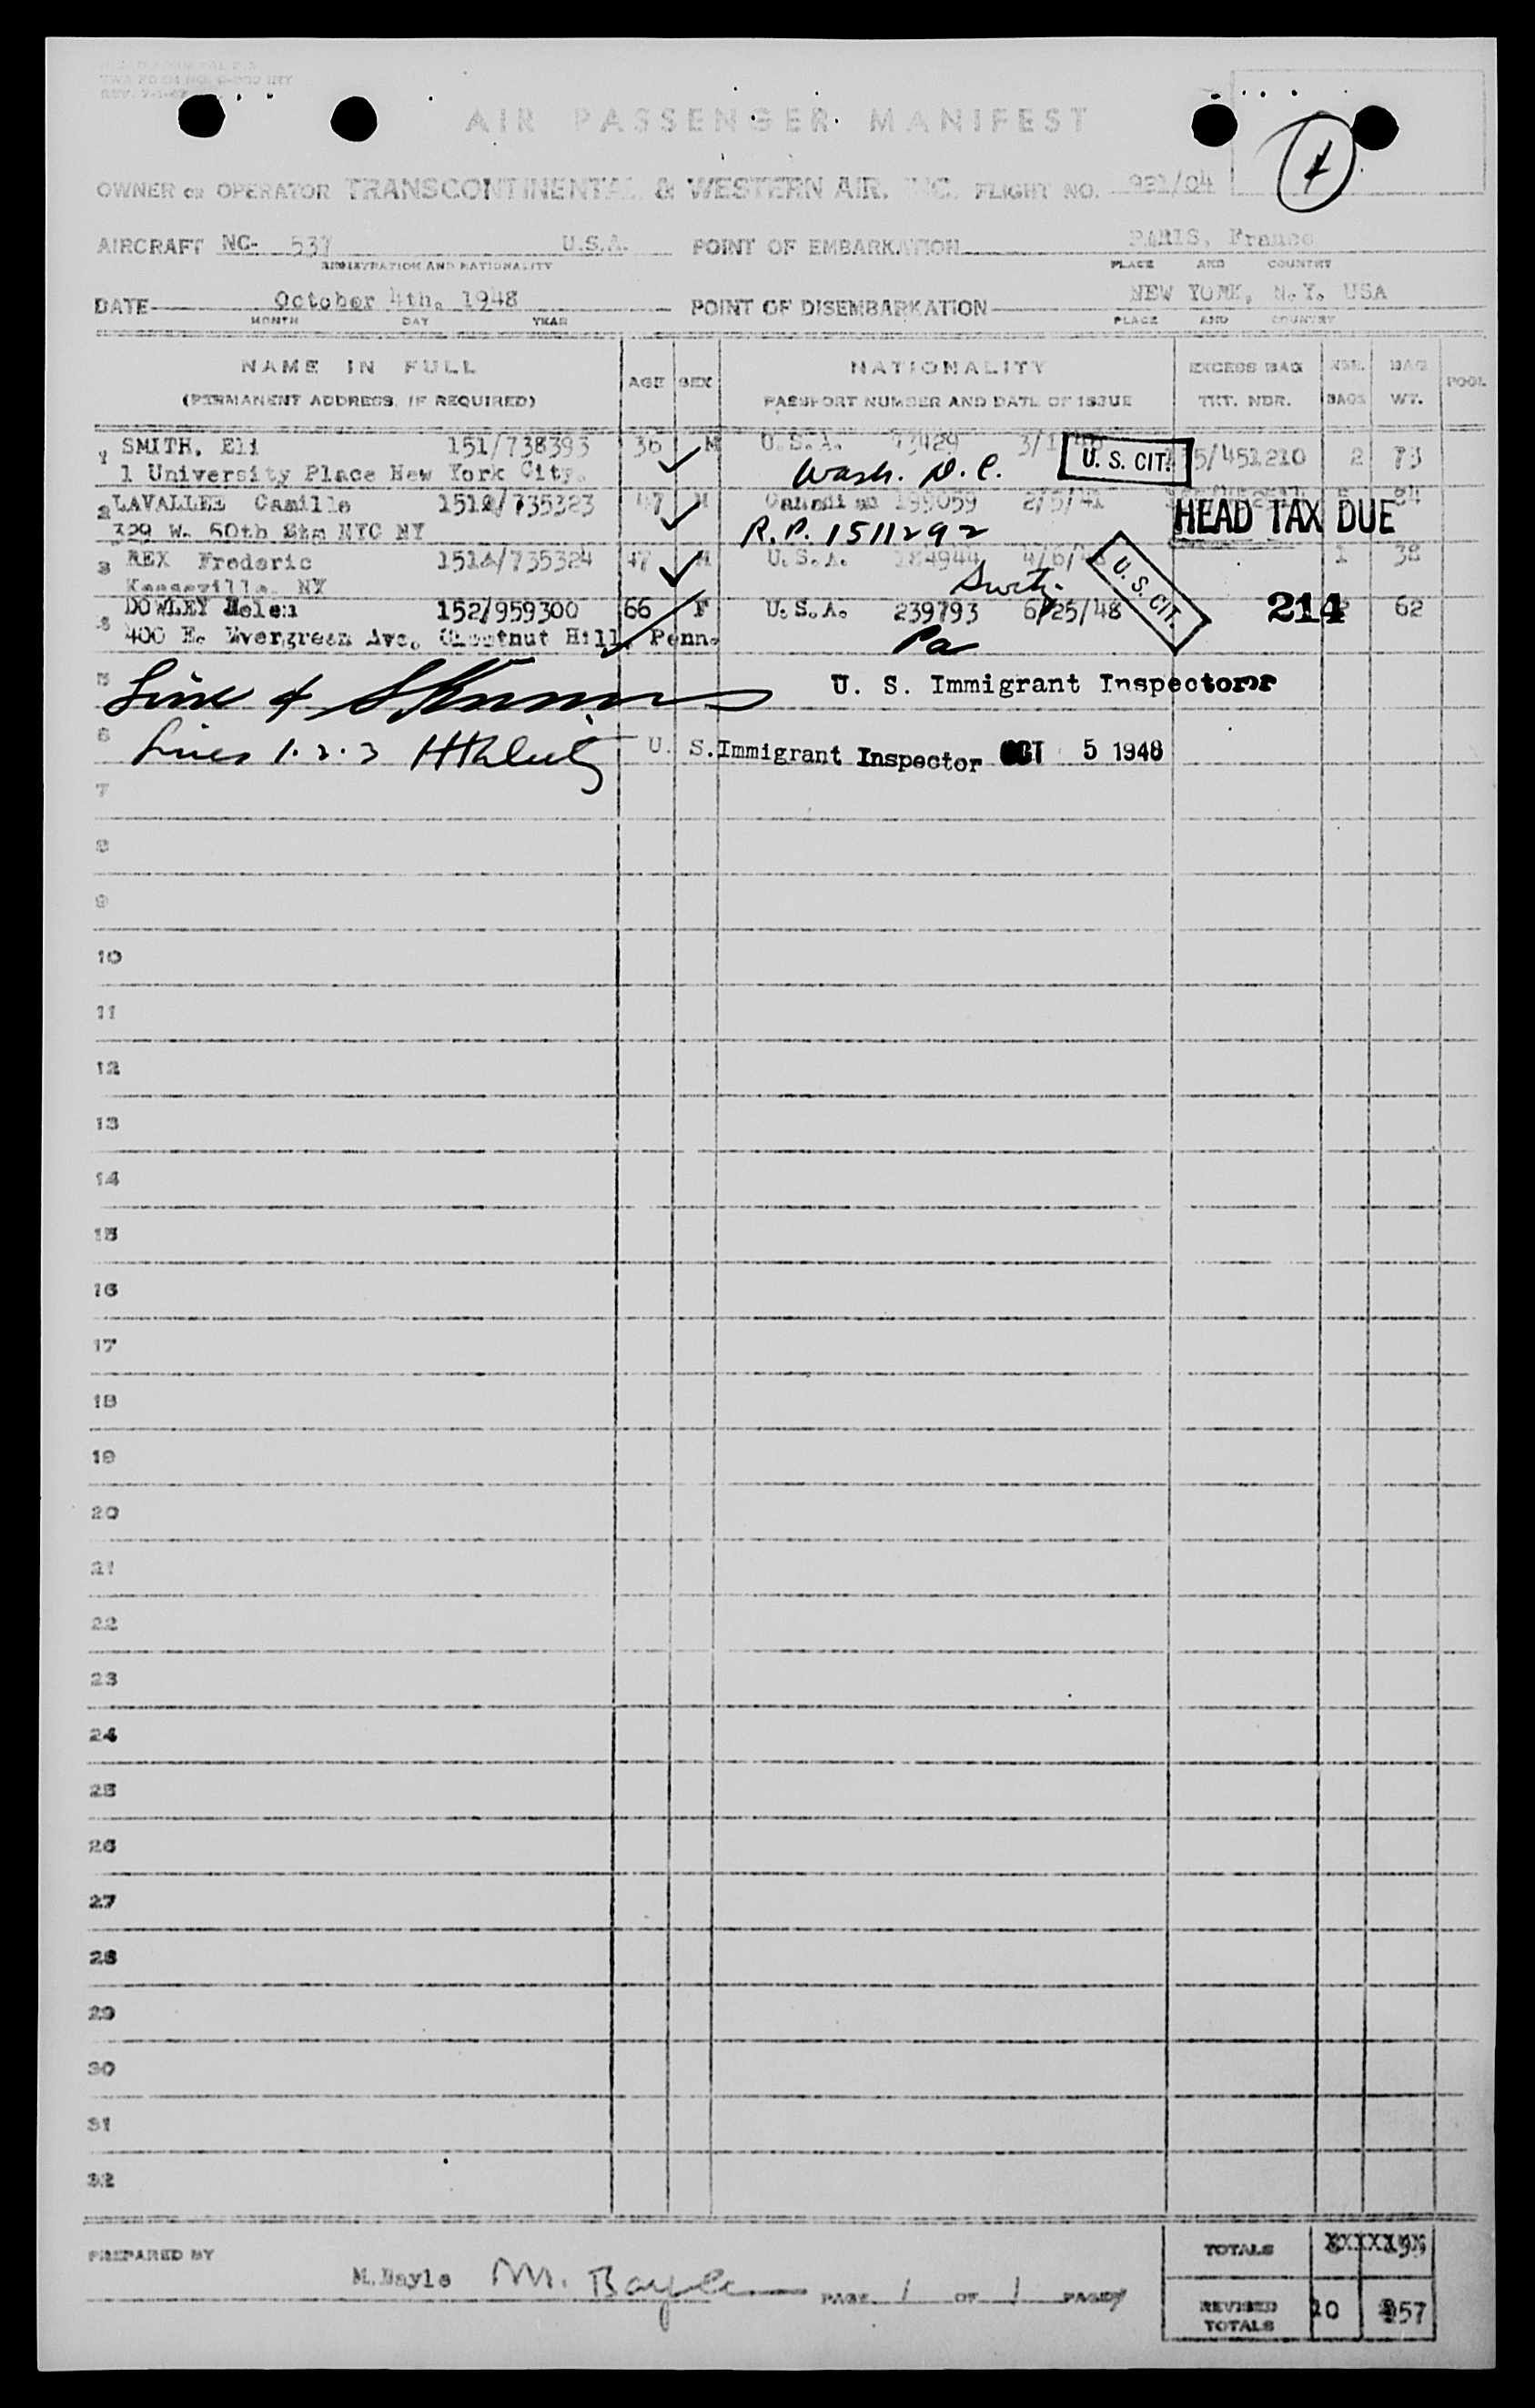 AIR PASSENGER MANIFEST
4
OWNER OR OPERATOR TRANSCONTINENTAL & WESTERN AIR, INC. FLIGHT NO. 921/04
AIRCRAFT NC- 537 U.S.A. POINT OF EMBARKATION PARIS, France
REGISTRATION AND NATIONALITY PLACE AND COUNTRY
DATE October 4th, 1948 POINT OF DISEMBARKATION NEW YORK, N.Y. USA
MONTH DAY YEAR PLACE AND COUNTRY
NAME IN FULL AGE SEX NATIONALITY EXCESS BAG NBR. BAG POOL
(PERMANENT ADDRESS, IF REQUIRED) PASSPORT NUMBER AND DATE OF ISSUE TKT. NBR. BAGS WT.
1 SMITH, Eli 151/738393 36 M U.S.A. 73429 U. S. CIT. 5/451210 2 73
1 University Place New York City. Wash. D.C.
2 LAVALLEE Camille 1512/735323 47 M Canadian 199059 2/5/41 84
329 W. 50th Stm NYC NY R.P. 1511292 HEAD TAX DUE
3 REX Frederic 151/735324 47 M U.S.A. 184944 4/6/48 U. S. CIT. 1 38
Keeseville, NY Switz.
4 DOWLEY Helen 152/959300 66 F U.S.A. 239793 6/25/48 214 62
400 E. Evergreen Ave. Chestnut Hill, Penn. Pa
5 Line 4 U. S. Immigrant Inspector
6 Lines 1.2.3 U. S. Immigrant Inspector OCT 5 1948
7
8
9
10
11
12
13
14
15
16
17
18
19
20
21
22
23
24
25
26
27
28
29
30
31
32
PREPARED BY M. Bayle M. Bayle PAGE 1 OF 1 PAGES
TOTALS
REVISED TOTALS 10 257